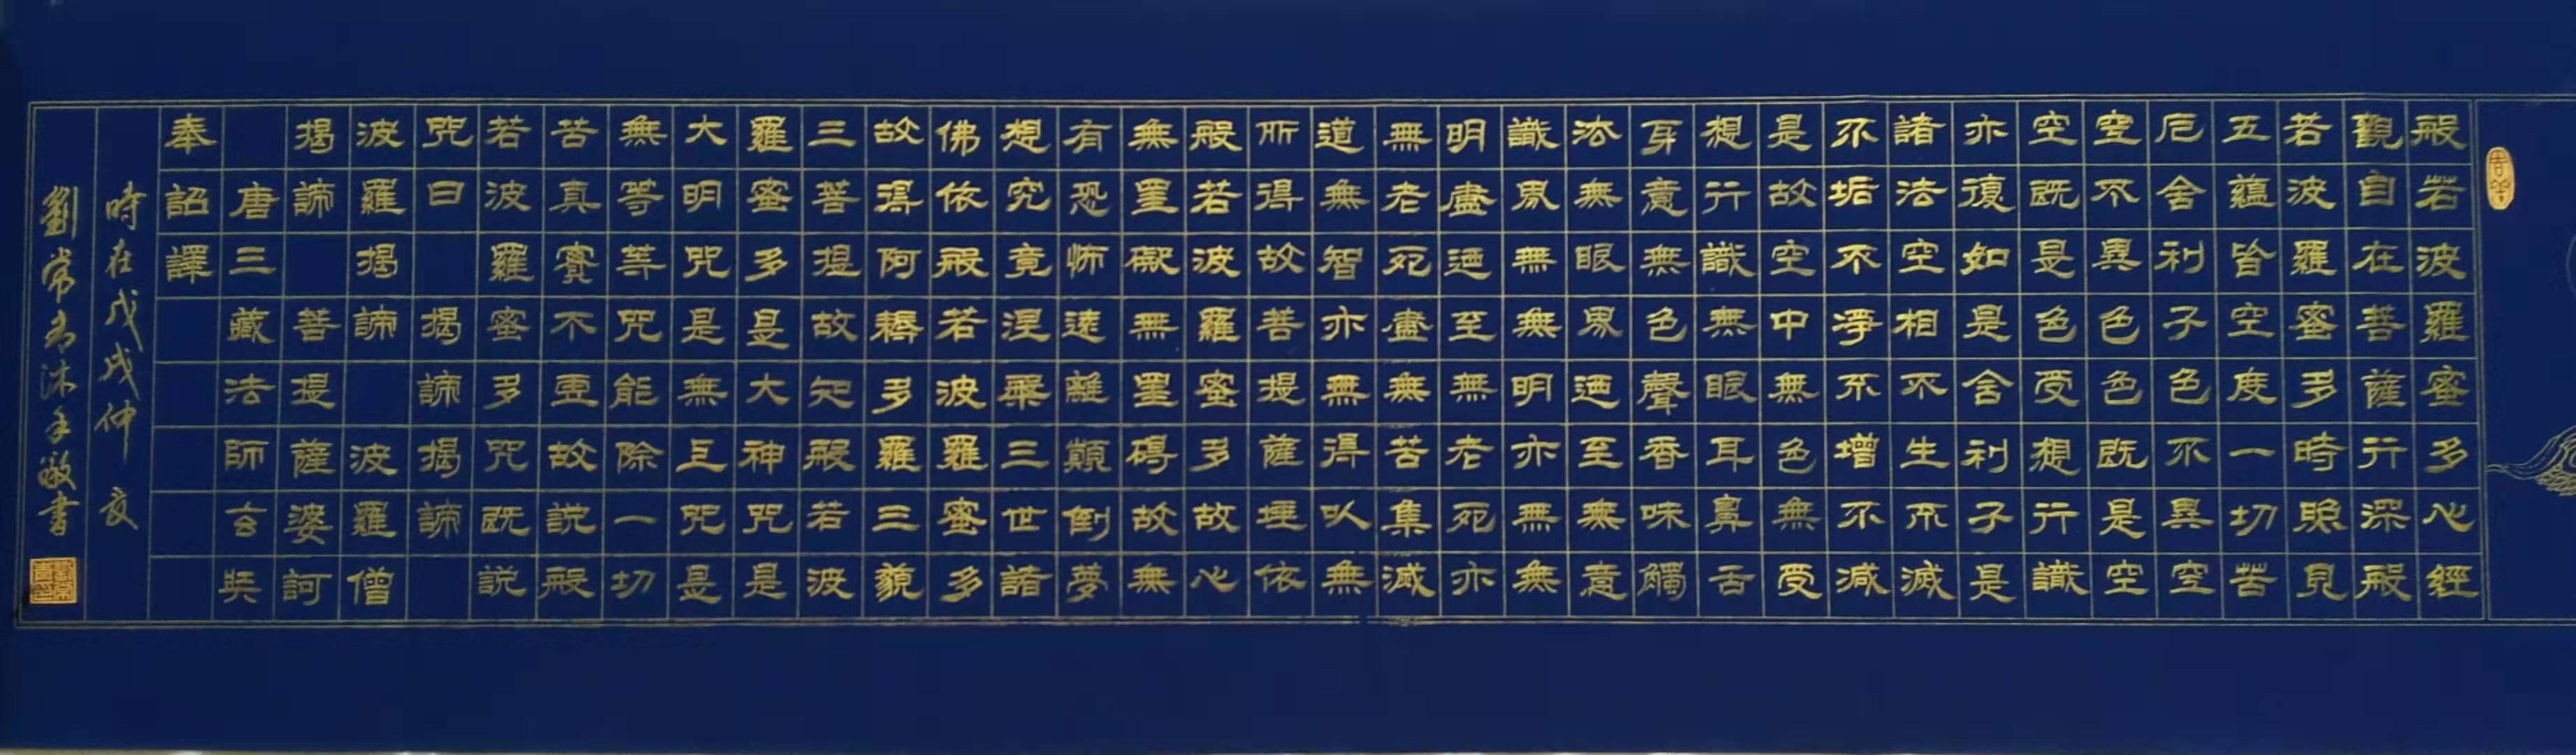 般若波羅蜜多心經
觀自在菩薩行深般
若波羅蜜多時照見
五蘊皆空度一切苦
厄舍利子色不異空
空不異色色既是空
空既是色受想行識
亦復如是舍利子是
諸法空相不生不滅
不垢不淨不增不減
是故空中無色無受
想行識無眼耳鼻舌
身意無色聲香味觸
法無眼界迺至無意
識界無無明亦無無
明盡迺至無老死亦
無老死盡無苦集滅
道無智亦無得以無
所得故菩提薩埵依
般若波羅蜜多故心
無罣礙無罣碍故無
有恐怖遠離顛倒夢
想究竟涅槃三世諸
佛依般若波羅蜜多
故得阿耨多羅三藐
三菩提故知般若波
羅蜜多是大神咒是
大明咒是無上咒是
無等等咒能除一切
苦真實不虛故說般
若波羅蜜多咒既說
咒曰 揭諦揭諦
波羅揭諦 波羅僧
揭諦 菩提薩婆訶
唐三藏法師玄奘
奉詔譯
時在戊戌仲夏
劉常沐手敬書